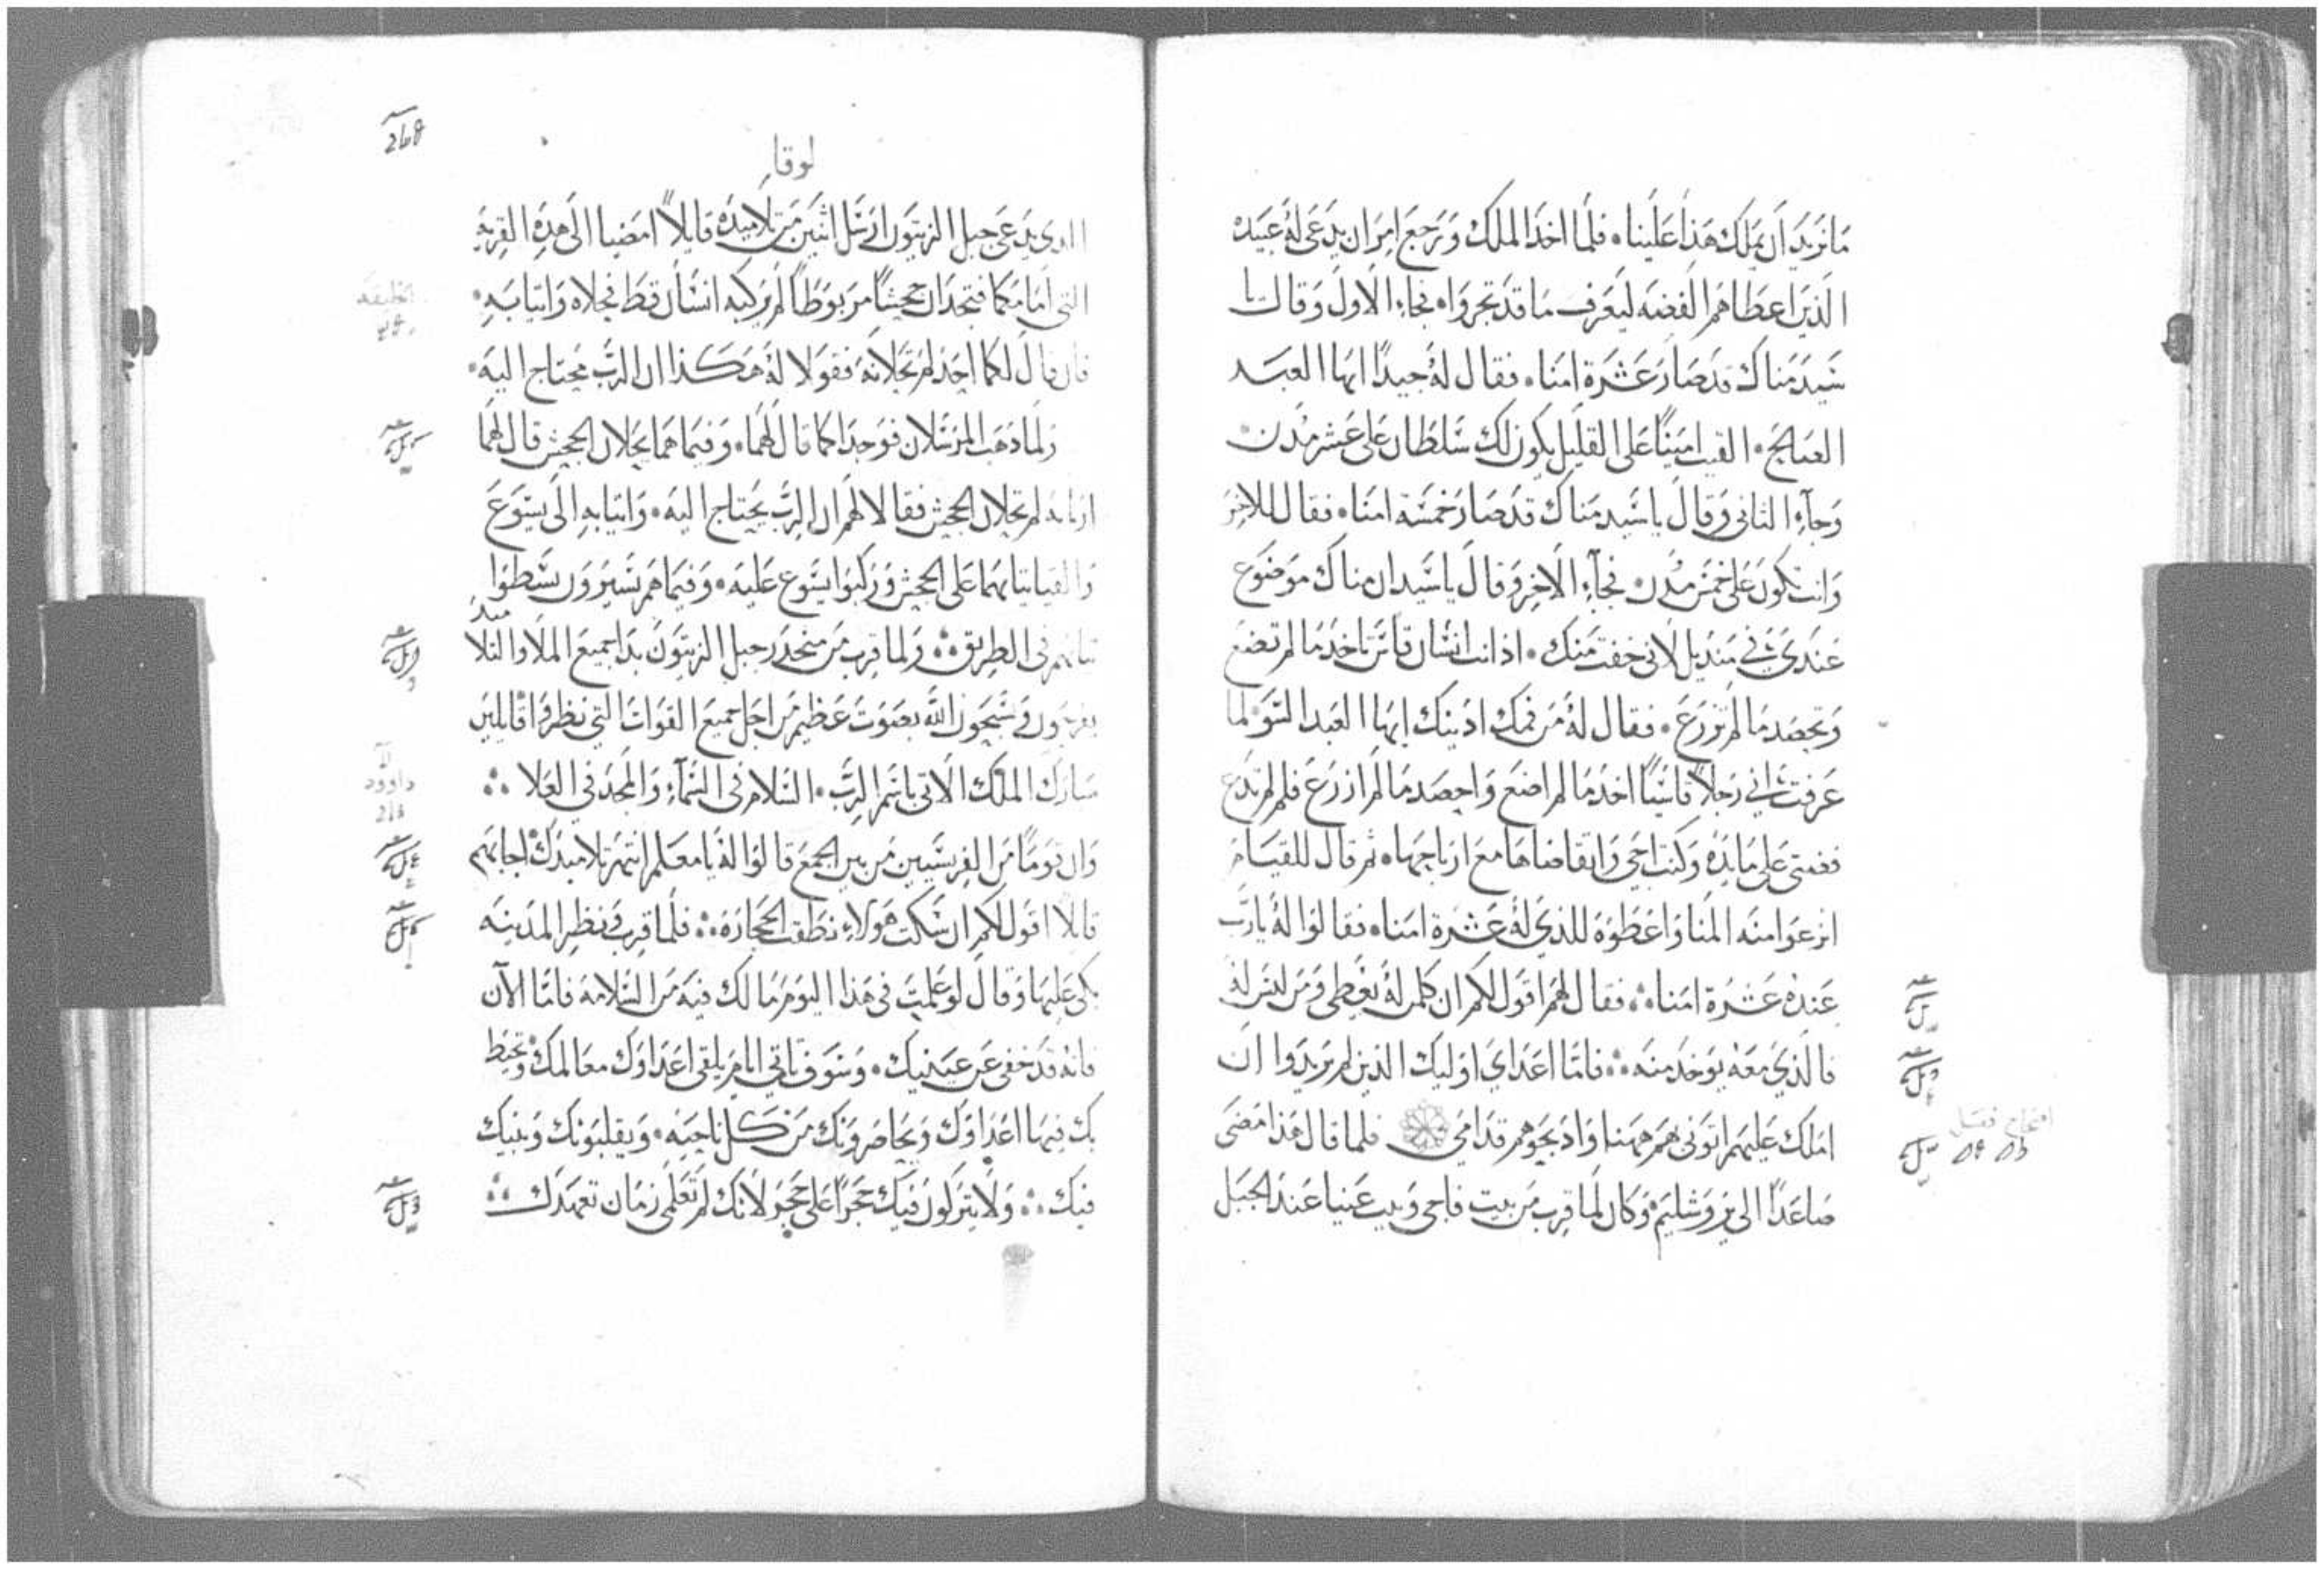 مَا نريدَ اَن يملَك هَذا عَلَينا ۰ فلمَا اخدَ الملك وَرَجعَ امَر ان يدَعَى لهُ عَبَيده
الَذيَن اعطاهمَ الفضه ليَعَرف مَا قدَ تجروَا ۰ فجاءِ الَاول وَقال يا
سَيدَ مَناك قدَ صَار عَشَرة امَنا ۰ فقال لهُ جيدًا ايها العبَد
الصَالحَ ۰ القيت امَينًا عَلى القلَيل يكون لك سَلطَان عَلى عَشر مُدن ۰
وَجآءِ الثانى وَقال يا سَيد مَناك قدَ صَار خمسَة امَنا ۰ فقال للاخِر
وَانت تكون عَلى خمَس مُدن ۰ فجآءِ الاخِر وَقال يا سَيد ان مناك موَضوَع
عَندىَ فى مَنديل لَانى خفت مَنك ۰ اذ انت انسَان قاسَ تاخدَ مَا لم تضعَ
وَتحصَد مَا لم تزرَع ۰ فقال لهُ مَن فمكَ ادَينك ايهَا العبدَ السَو لما
عَرفت انى رَجلاً قاسَيًا اخدَ مَا لم اضعَ وَاحصَد مَا لم ازرَعَ فلم لم تدَع
فضتى عَلى مَايدَه وَكنت اجى وَاتقاضاهَا مَع ارباحِهَا ۰ ثم قال للقيَام
انزعَوا منَه المَنا وَاعَطوَه للذيَ لهُ عَشَرة امَنا ۰ فقالوَا لهُ يارَب
عَندَهُ عَشَرة امَنا ۰۰ فقال لهَم اقوَل لكم ان كلمن لهُ يعَطى وَمَن ليسَ لهُ
فالَذيَ معَه يوَخد منَه ۰۰ فامَا اعدَايَ اوَليك الذينَ لم يرَيدَوا ان
امَلك عَليهَم اتوَنى بهَم ههَنا وَادَبحَوهم قدَامى فلما قال هَذا مَضىَ
صَاعَدًا الى يرَوَشليمَ وَكان لمَا قرب مَن بيت فاجى وَبيت عَنيا عَندَ الجبَل
افتتاح فصل
لوقا
268
الدى يدَعَى جبل الزيتوَن ارَسَل اثنيَن مَن تلاميدَه قايلاً امَضيا الَى هدَه القريَة
التى امَامَكما فتجدَان جحشًا مَربوَطًا لم يرَكبه انسَان قط فحلاه وَاتيا بَه ۰
فان قال لكما احَد لم تحَلانهَ فقوَلا لهُ هَكذا ان الربَ محتَاج اليَه ۰
وَلما دَهَب المرَسَلان فوَجدَا كما قال لهَما ۰ وَفيمَا هما يحَلان الجحش قال لهَما
اربابه لم تحلان الجحَش فقالا لهَم ان الربَ يحَتاج اليَه ۰ وَاتيا بهِ الَى يسَوَعَ
وَالقيا ثيابهمَا عَلى الجحش وَرَكبوَا يسَوع عَليَه ۰ وَفيمَا هم يسَيرَوَن بسَطوَا
ثيابهم فى الطريق ۰۰ وَلما قرب مَن منحدَر جبل الزيتوَن بدَا جميع الملا وَالتلاميد
يفرحَوَن وَيسَبحوَن اللهَ بصَوَت عَظيم مَن اجَل جميع القوَات التى نظروَا قايليَن
مبَارك الملَك الَاتى باسَم الربَ ۰ السَلام فى السَمآءِ وَالمجَد فى العَلا ۰۰
داوود
وَان قوَمًا مَن الفريسَيين مَن بين الجمعَ قالوَا لهُ يا معَلم انتهَر تلاميدَك اجابهَم
قايلاً اقوَل لكم ان سَكت هَولاءِ نطقت الحجَارَة ۰۰ فلمَا قرب وَنظر المدَينَه
بكى عَليهَا وَقال لوعَلمتَ فى هَذا اليوَم مَا لك فيَه مَن السَلامهَ فامَا الآن
فانهُ قدَ خفى عَن عَينيك ۰ وَسَوَف تاتى ايام يلقى اعَداوَك معَالمك وَتحيَط
بك فيهَا اعَداوَك وَيحَاصَروَنك مَن كل ناحيَة ۰ وَيقلبوَنك وَبنيك
فيك ۰۰ وَلَا يترَكون فيَك حَجرًا عَلى حَجر لانك لم تعَلمى زمَان تعهدَك ۰۰